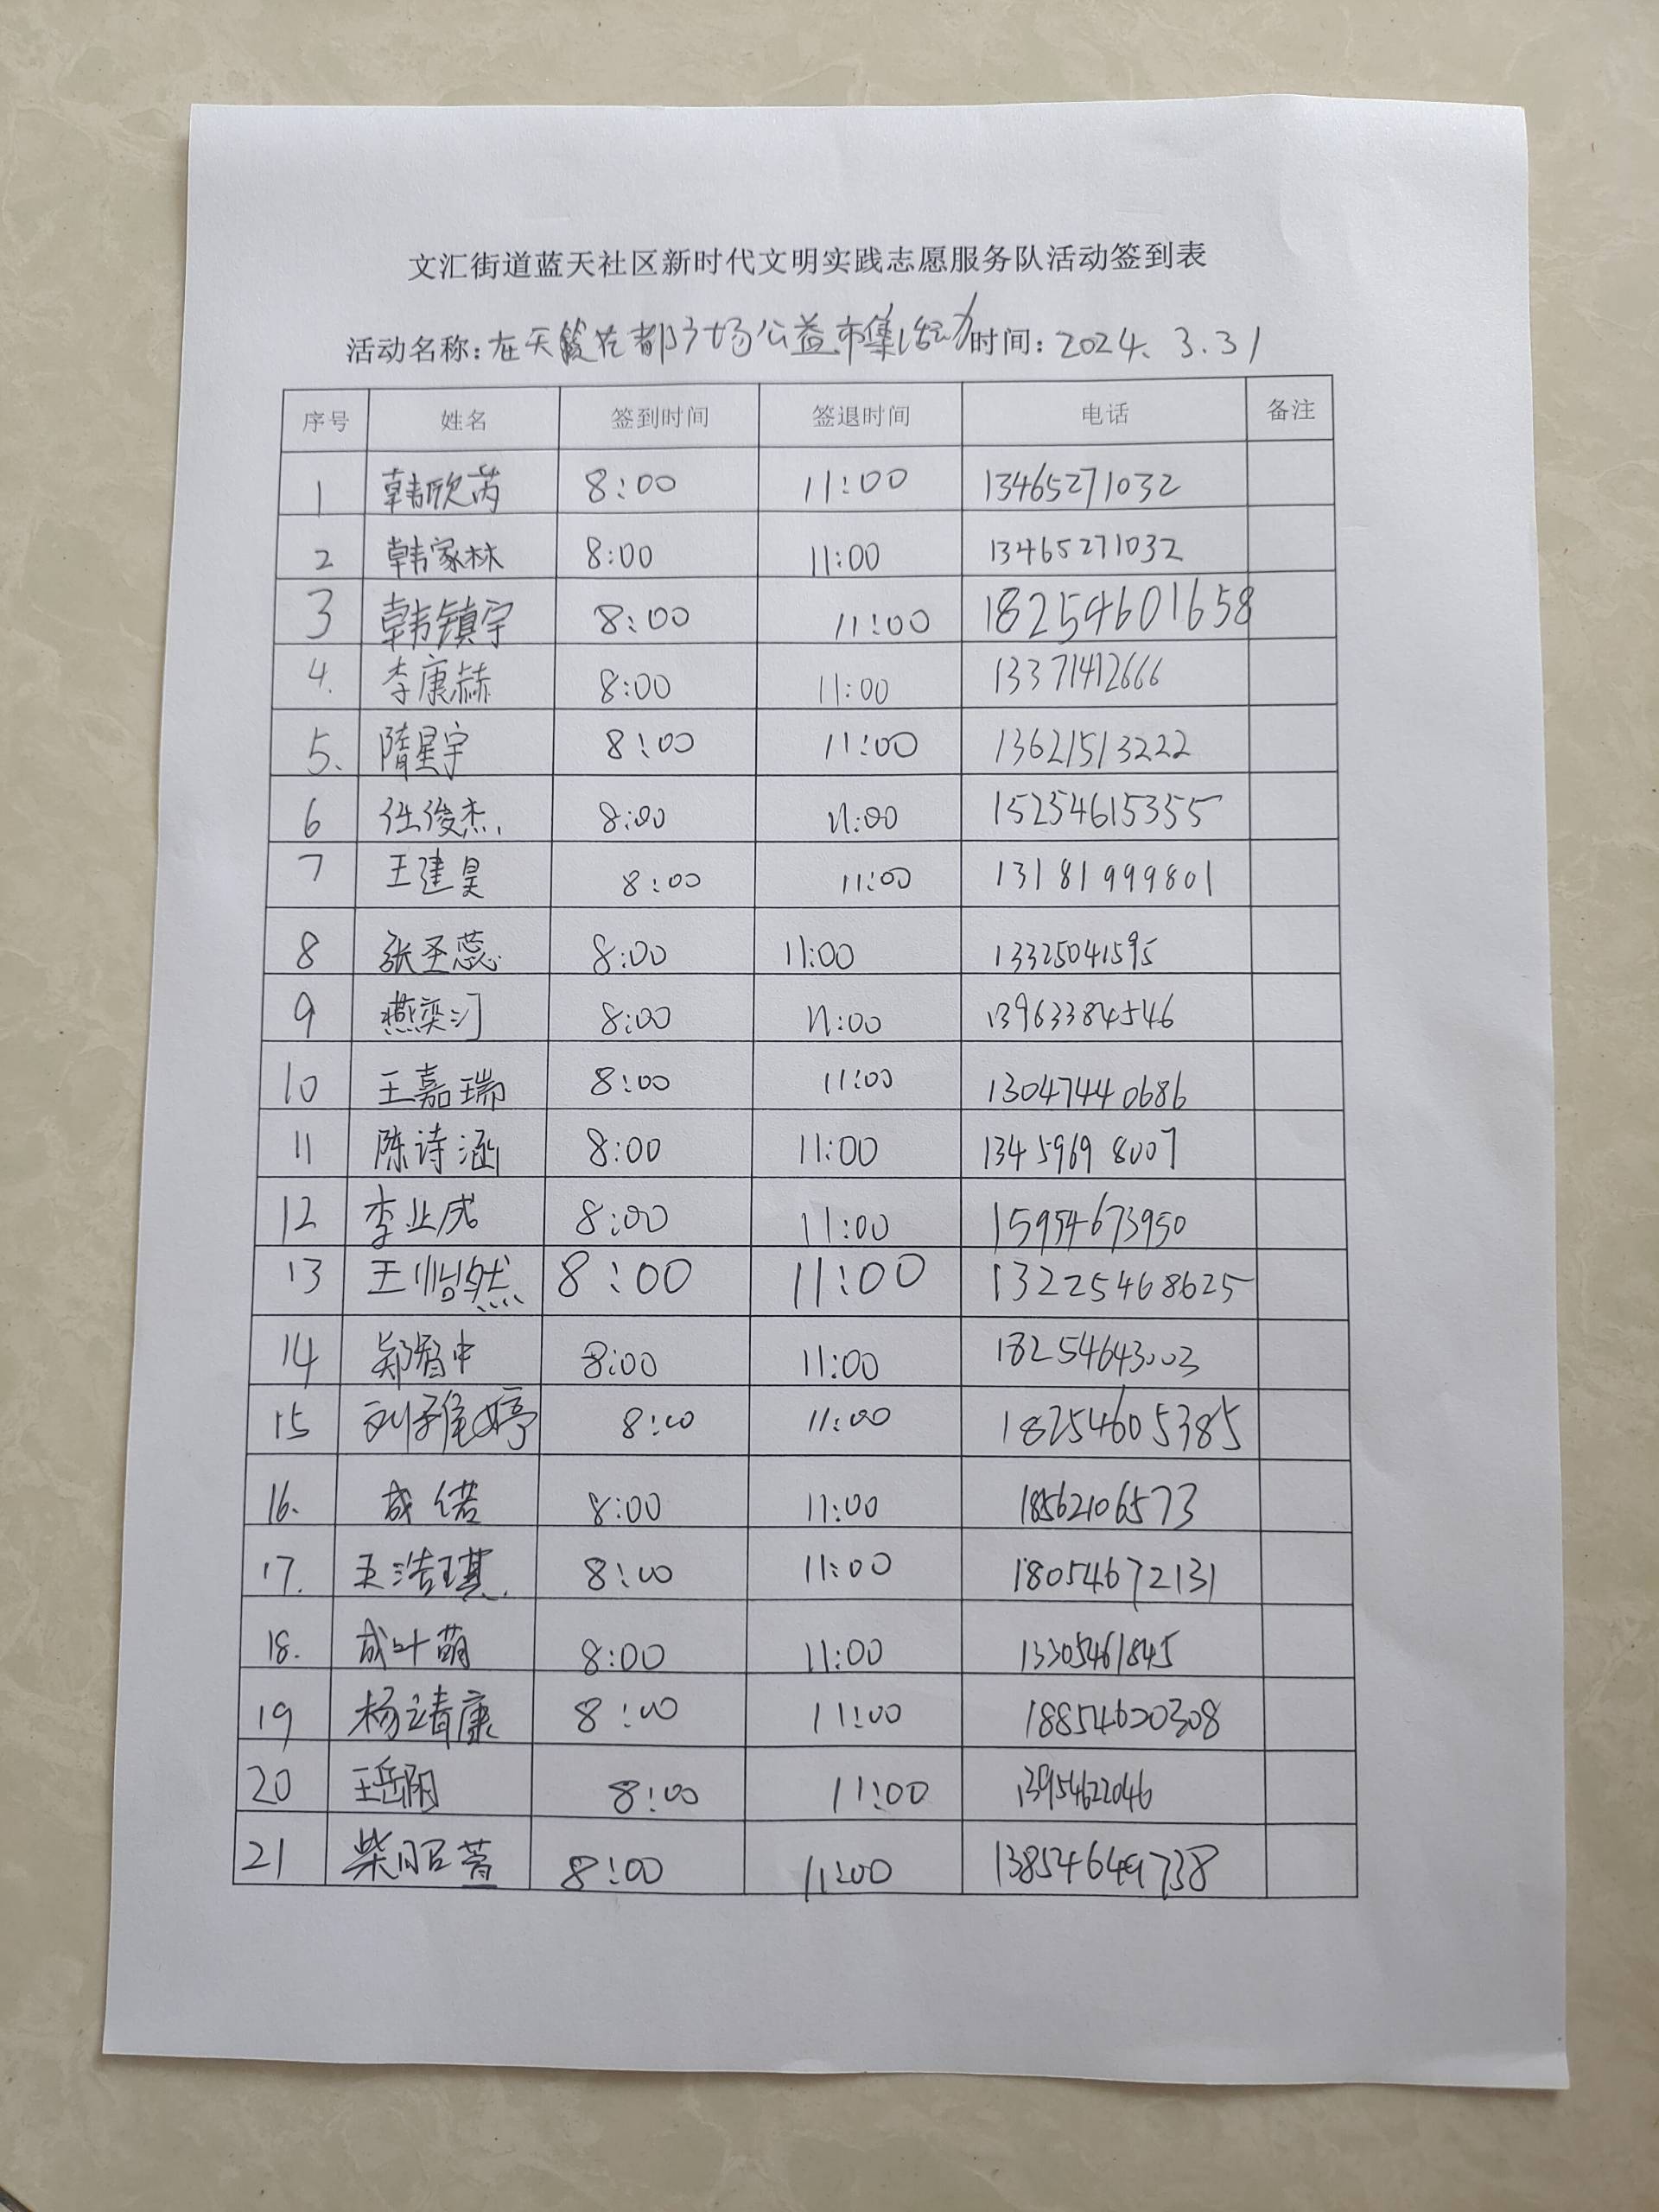 文汇街道蓝天社区新时代文明实践志愿服务队活动签到表
活动名称:在天鹅花都广场公益市集活动 时间:2024.3.31
序号 姓名 签到时间 签退时间 电话 备注
1 韩欣芮 8:00 11:00 13465271032
2 韩家林 8:00 11:00 13465271032
3 韩镇宇 8:00 11:00 18254601658
4. 李康赫 8:00 11:00 13371412666
5. 隋星宇 8:00 11:00 13621513222
6 任俊杰 8:00 11:00 15254615355
7 王建昊 8:00 11:00 13181999801
8 张圣蕊 8:00 11:00 13325041595
9 燕奕汀 8:00 11:00 13963384546
10 王嘉瑞 8:00 11:00 13047440686
11 陈诗涵 8:00 11:00 13459698007
12 李止成 8:00 11:00 15954673950
13 王怡然 8:00 11:00 13225468625
14 郑智中 8:00 11:00 18254643003
15 刘雅婷 8:00 11:00 18254605385
16. 成偌 8:00 11:00 18562106573
17. 王浩琪 8:00 11:00 18054672131
18. 成叶萌 8:00 11:00 13305461845
19 杨靖康 8:00 11:00 18854620308
20 王岳阳 8:00 11:00 13954622046
21 柴昭萱 8:00 11:00 13854649738